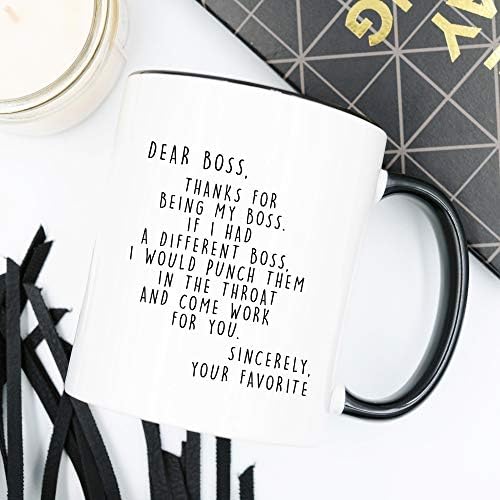 AY
NG
DEAR BOSS,
THANKS FOR
BEING MY BOSS.
IF I HAD
A DIFFERENT BOSS,
I WOULD PUNCH THEM
IN THE THROAT
AND COME WORK
FOR YOU.
SINCERELY,
YOUR FAVORITE